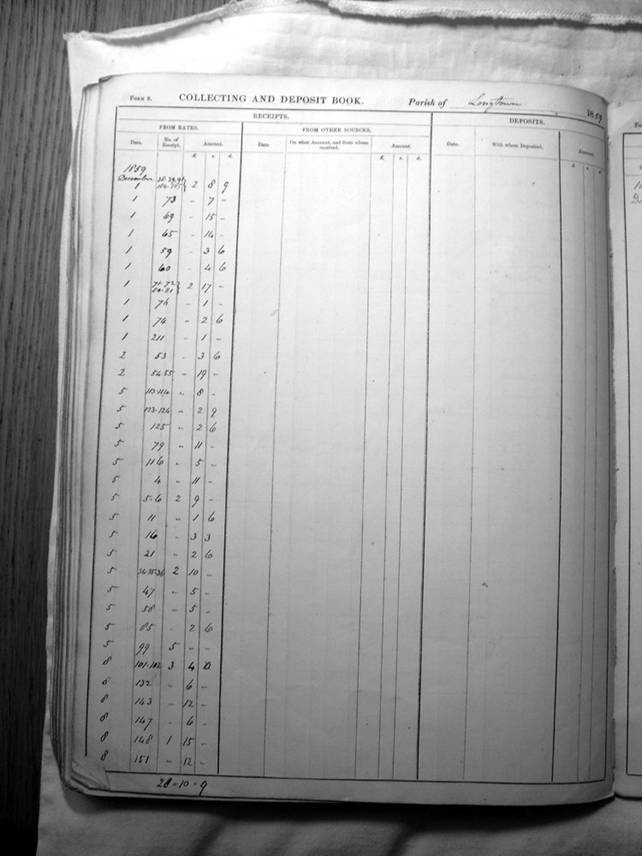 Form 9. COLLECTING AND DEPOSIT BOOK. Parish of Longtown 1859
RECEIPTS. DEPOSITS.
FROM RATES. FROM OTHER SOURCES.
Date. No. of Receipt. Amount. Date. On what Account, and from whom received. Amount. Date. With whom Deposited. Amount.
£ s. d. £ s. d. £ s. d.
1859
December
1 2 8 9
1 73 - 7 -
1 69 - 15 -
1 65 - 14 -
1 59 - 3 6
1 60 - 4 6
1 71-72 2 17 -
1 76 - 1 -
1 74 - 2 6
1 211 - 1 -
2 53 - 3 6
2 54-55 - 19 -
5 113-114 - 8 -
5 123-124 - 2 9
5 125 - 2 6
5 79 - 11 -
5 116 - 5 -
5 4 - 11 -
5 5-6 2 9 -
5 11 - 1 6
5 16 - 3 3
5 21 - 2 6
5 34-35-36 2 10 -
5 47 - 5 -
5 58 - 5 -
5 85 - 2 6
5 99 5 - -
8 101-102 3 4 10
8 132 - 6 -
8 143 - 12 -
8 147 - 6 -
8 148 1 15 -
8 151 - 12 -
28-10-9